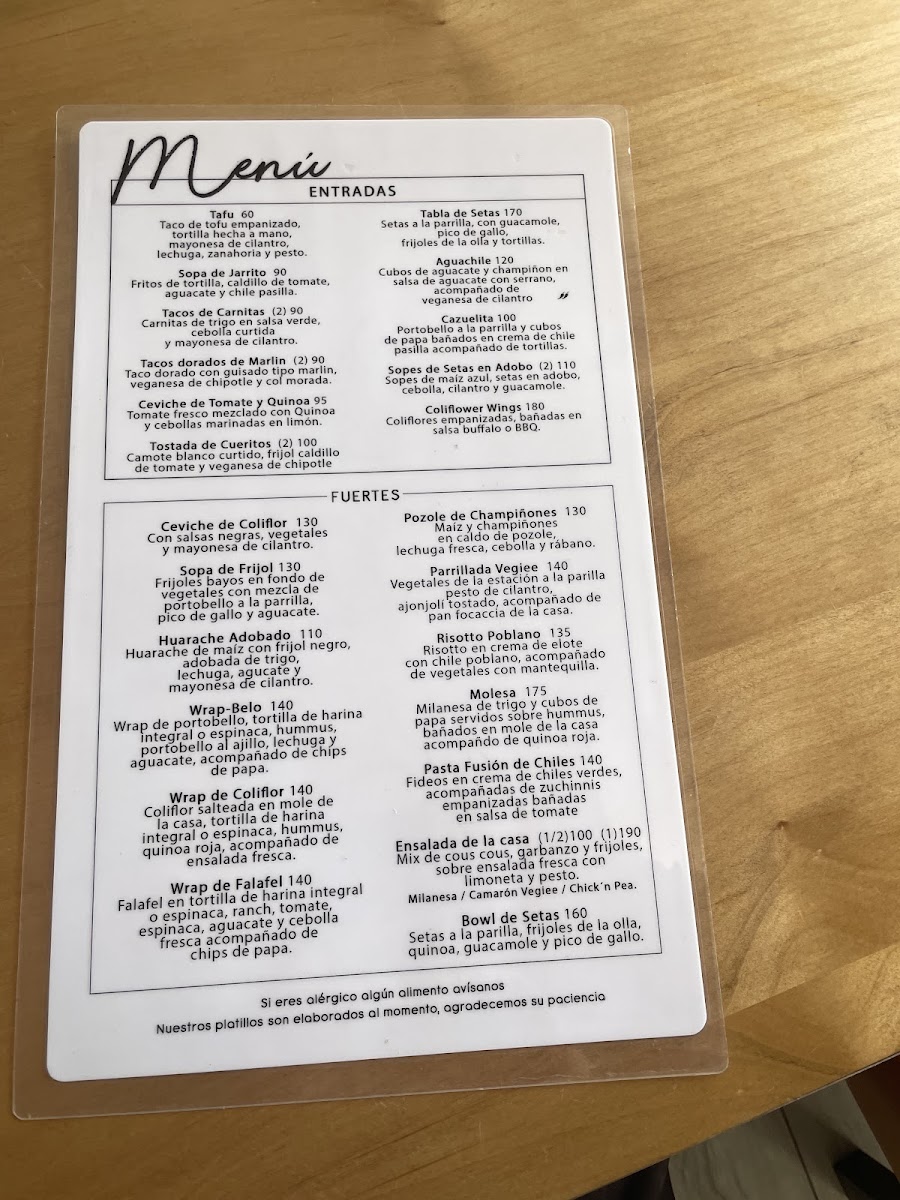 Menú
ENTRADAS
Tafu 60
Taco de tofu empanizado,
tortilla hecha a mano,
mayonesa de cilantro,
lechuga, zanahoria y pesto.
Sopa de Jarrito 90
Fritos de tortilla, caldillo de tomate,
aguacate y chile pasilla.
Tacos de Carnitas (2) 90
Carnitas de trigo en salsa verde,
cebolla curtida
y mayonesa de cilantro.
Tacos dorados de Marlin (2) 90
Taco dorado con guisado tipo marlin,
veganesa de chipotle y col morada.
Ceviche de Tomate y Quinoa 95
Tomate fresco mezclado con Quinoa
y cebollas marinadas en limón.
Tostada de Cueritos (2) 100
Camote blanco curtido, frijol caldillo
de tomate y veganesa de chipotle
Tabla de Setas 170
Setas a la parrilla, con guacamole,
pico de gallo,
frijoles de la olla y tortillas.
Aguachile 120
Cubos de aguacate y champiñon en
salsa de aguacate con serrano,
acompañado de
veganesa de cilantro
Cazuelita 100
Portobello a la parrilla y cubos
de papa bañados en crema de chile
pasilla acompañado de tortillas.
Sopes de Setas en Adobo (2) 110
Sopes de maíz azul, setas en adobo,
cebolla, cilantro y guacamole.
Coliflower Wings 180
Coliflores empanizadas, bañadas en
salsa buffalo o BBQ.
FUERTES
Ceviche de Coliflor 130
Con salsas negras, vegetales
y mayonesa de cilantro.
Sopa de Frijol 130
Frijoles bayos en fondo de
vegetales con mezcla de
portobello a la parrilla,
pico de gallo y aguacate.
Huarache Adobado 110
Huarache de maíz con frijol negro,
adobada de trigo,
lechuga, agucate y
mayonesa de cilantro.
Wrap-Belo 140
Wrap de portobello, tortilla de harina
integral o espinaca, hummus,
portobello al ajillo, lechuga y
aguacate, acompañado de chips
de papa.
Wrap de Coliflor 140
Coliflor salteada en mole de
la casa, tortilla de harina
integral o espinaca, hummus,
quinoa roja, acompañado de
ensalada fresca.
Wrap de Falafel 140
Falafel en tortilla de harina integral
o espinaca, ranch, tomate,
espinaca, aguacate y cebolla
fresca acompañado de
chips de papa.
Pozole de Champiñones 130
Maíz y champiñones
en caldo de pozole,
lechuga fresca, cebolla y rábano.
Parrillada Vegiee 140
Vegetales de la estación a la parilla
pesto de cilantro,
ajonjolí tostado, acompañado de
pan focaccia de la casa.
Risotto Poblano 135
Risotto en crema de elote
con chile poblano, acompañado
de vegetales con mantequilla.
Molesa 175
Milanesa de trigo y cubos de
papa servidos sobre hummus,
bañados en mole de la casa
acompañdo de quinoa roja.
Pasta Fusión de Chiles 140
Fideos en crema de chiles verdes,
acompañadas de zuchinnis
empanizadas bañadas
en salsa de tomate
Ensalada de la casa (1/2)100 (1)190
Mix de cous cous, garbanzo y frijoles,
sobre ensalada fresca con
limoneta y pesto.
Milanesa / Camarón Vegiee / Chick´n Pea.
Bowl de Setas 160
Setas a la parilla, frijoles de la olla,
quinoa, guacamole y pico de gallo.
Si eres alérgico algún alimento avísanos
Nuestros platillos son elaborados al momento, agradecemos su paciencia